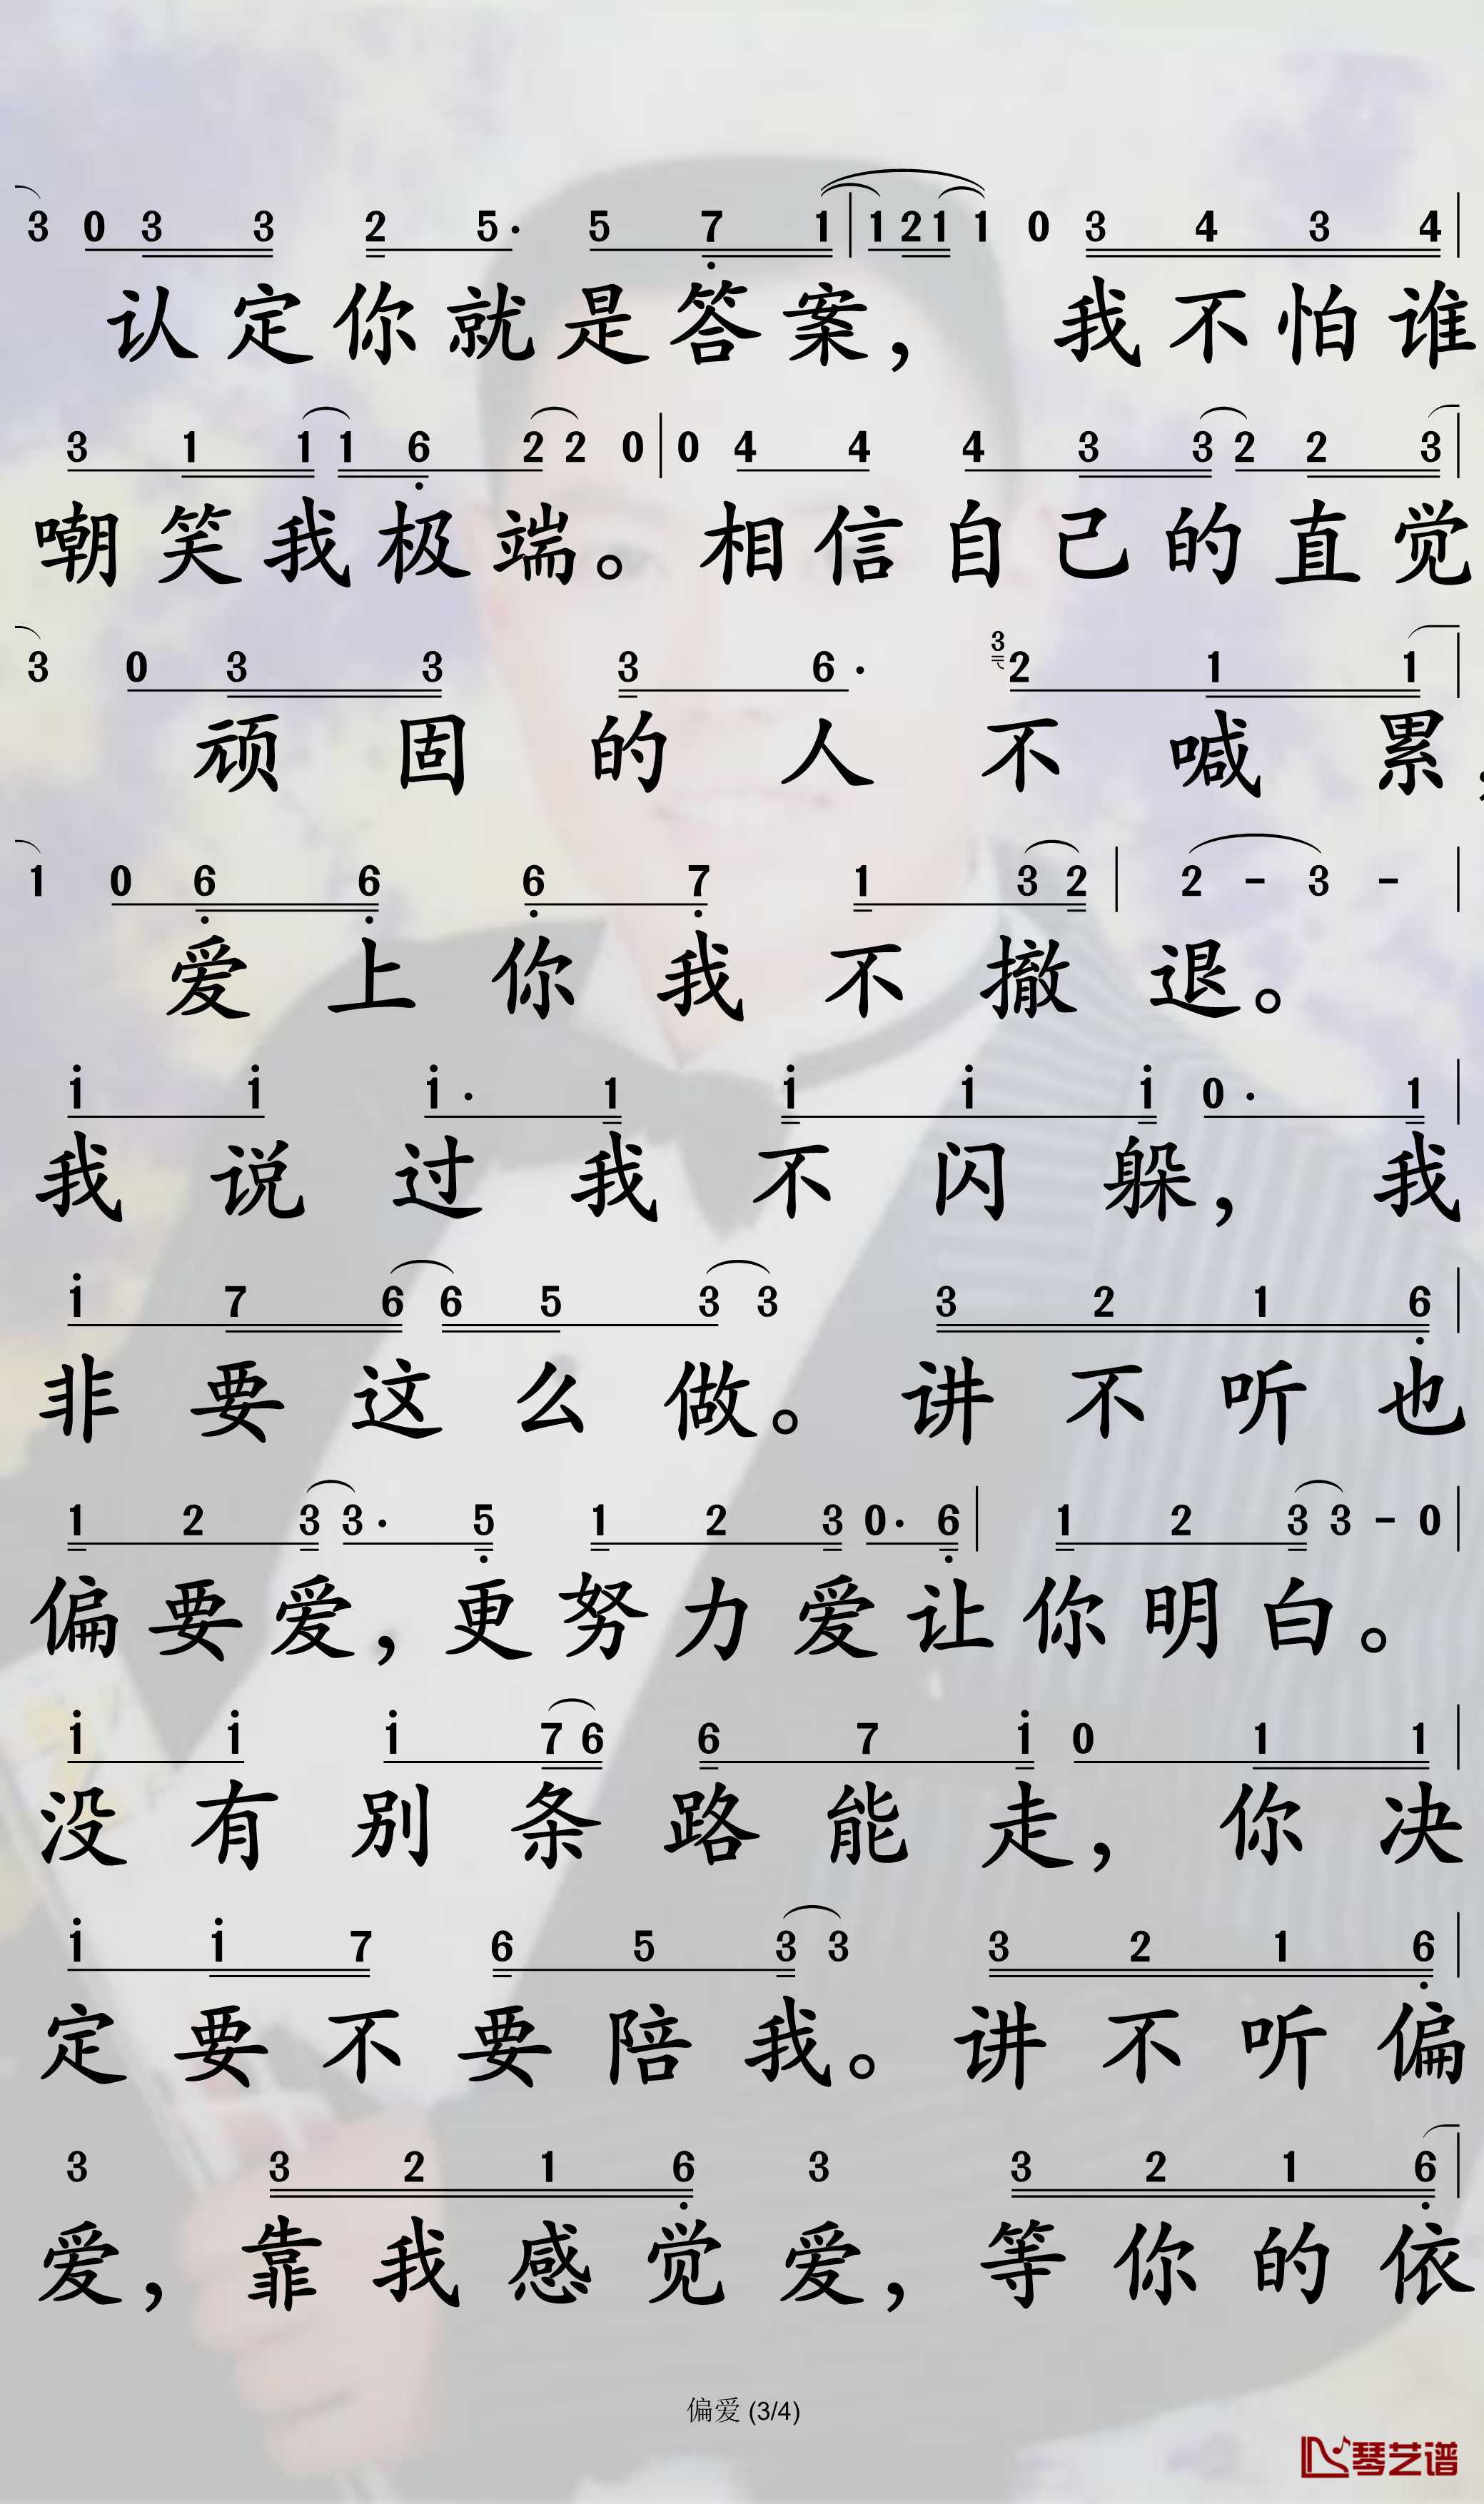 3 0 3 3 2 5· 5 7 1 | 1 2 1 1 0 3 4 3 4 |
认定你就是答案， 我不怕谁
3 1 1 1 6 2 2 0 | 0 4 4 4 3 3 2 2 3 |
嘲笑我极端。相信自己的直觉
3 0 3 3 3 6· 3 2 1 1 |
顽固的人不喊累，
1 0 6 6 6 7 1 3 2 | 2 - 3 - |
爱上你我不撤退。
i i i· 1 i i i 0· 1 |
我说过我不闪躲，我
i 7 6 6 5 3 3 3 2 1 6 |
非要这么做。讲不听也
1 2 3 3· 5 1 2 3 0· 6 | 1 2 3 3 - 0 |
偏要爱，更努力爱让你明白。
i i i 7 6 6 7 i 0 1 1 |
没有别条路能走，你决
i i 7 6 5 3 3 3 2 1 6 |
定要不要陪我。讲不听偏
3 3 2 1 6 3 3 2 1 6 |
爱，靠我感觉爱，等你的依
偏爱 (3/4)
琴艺谱